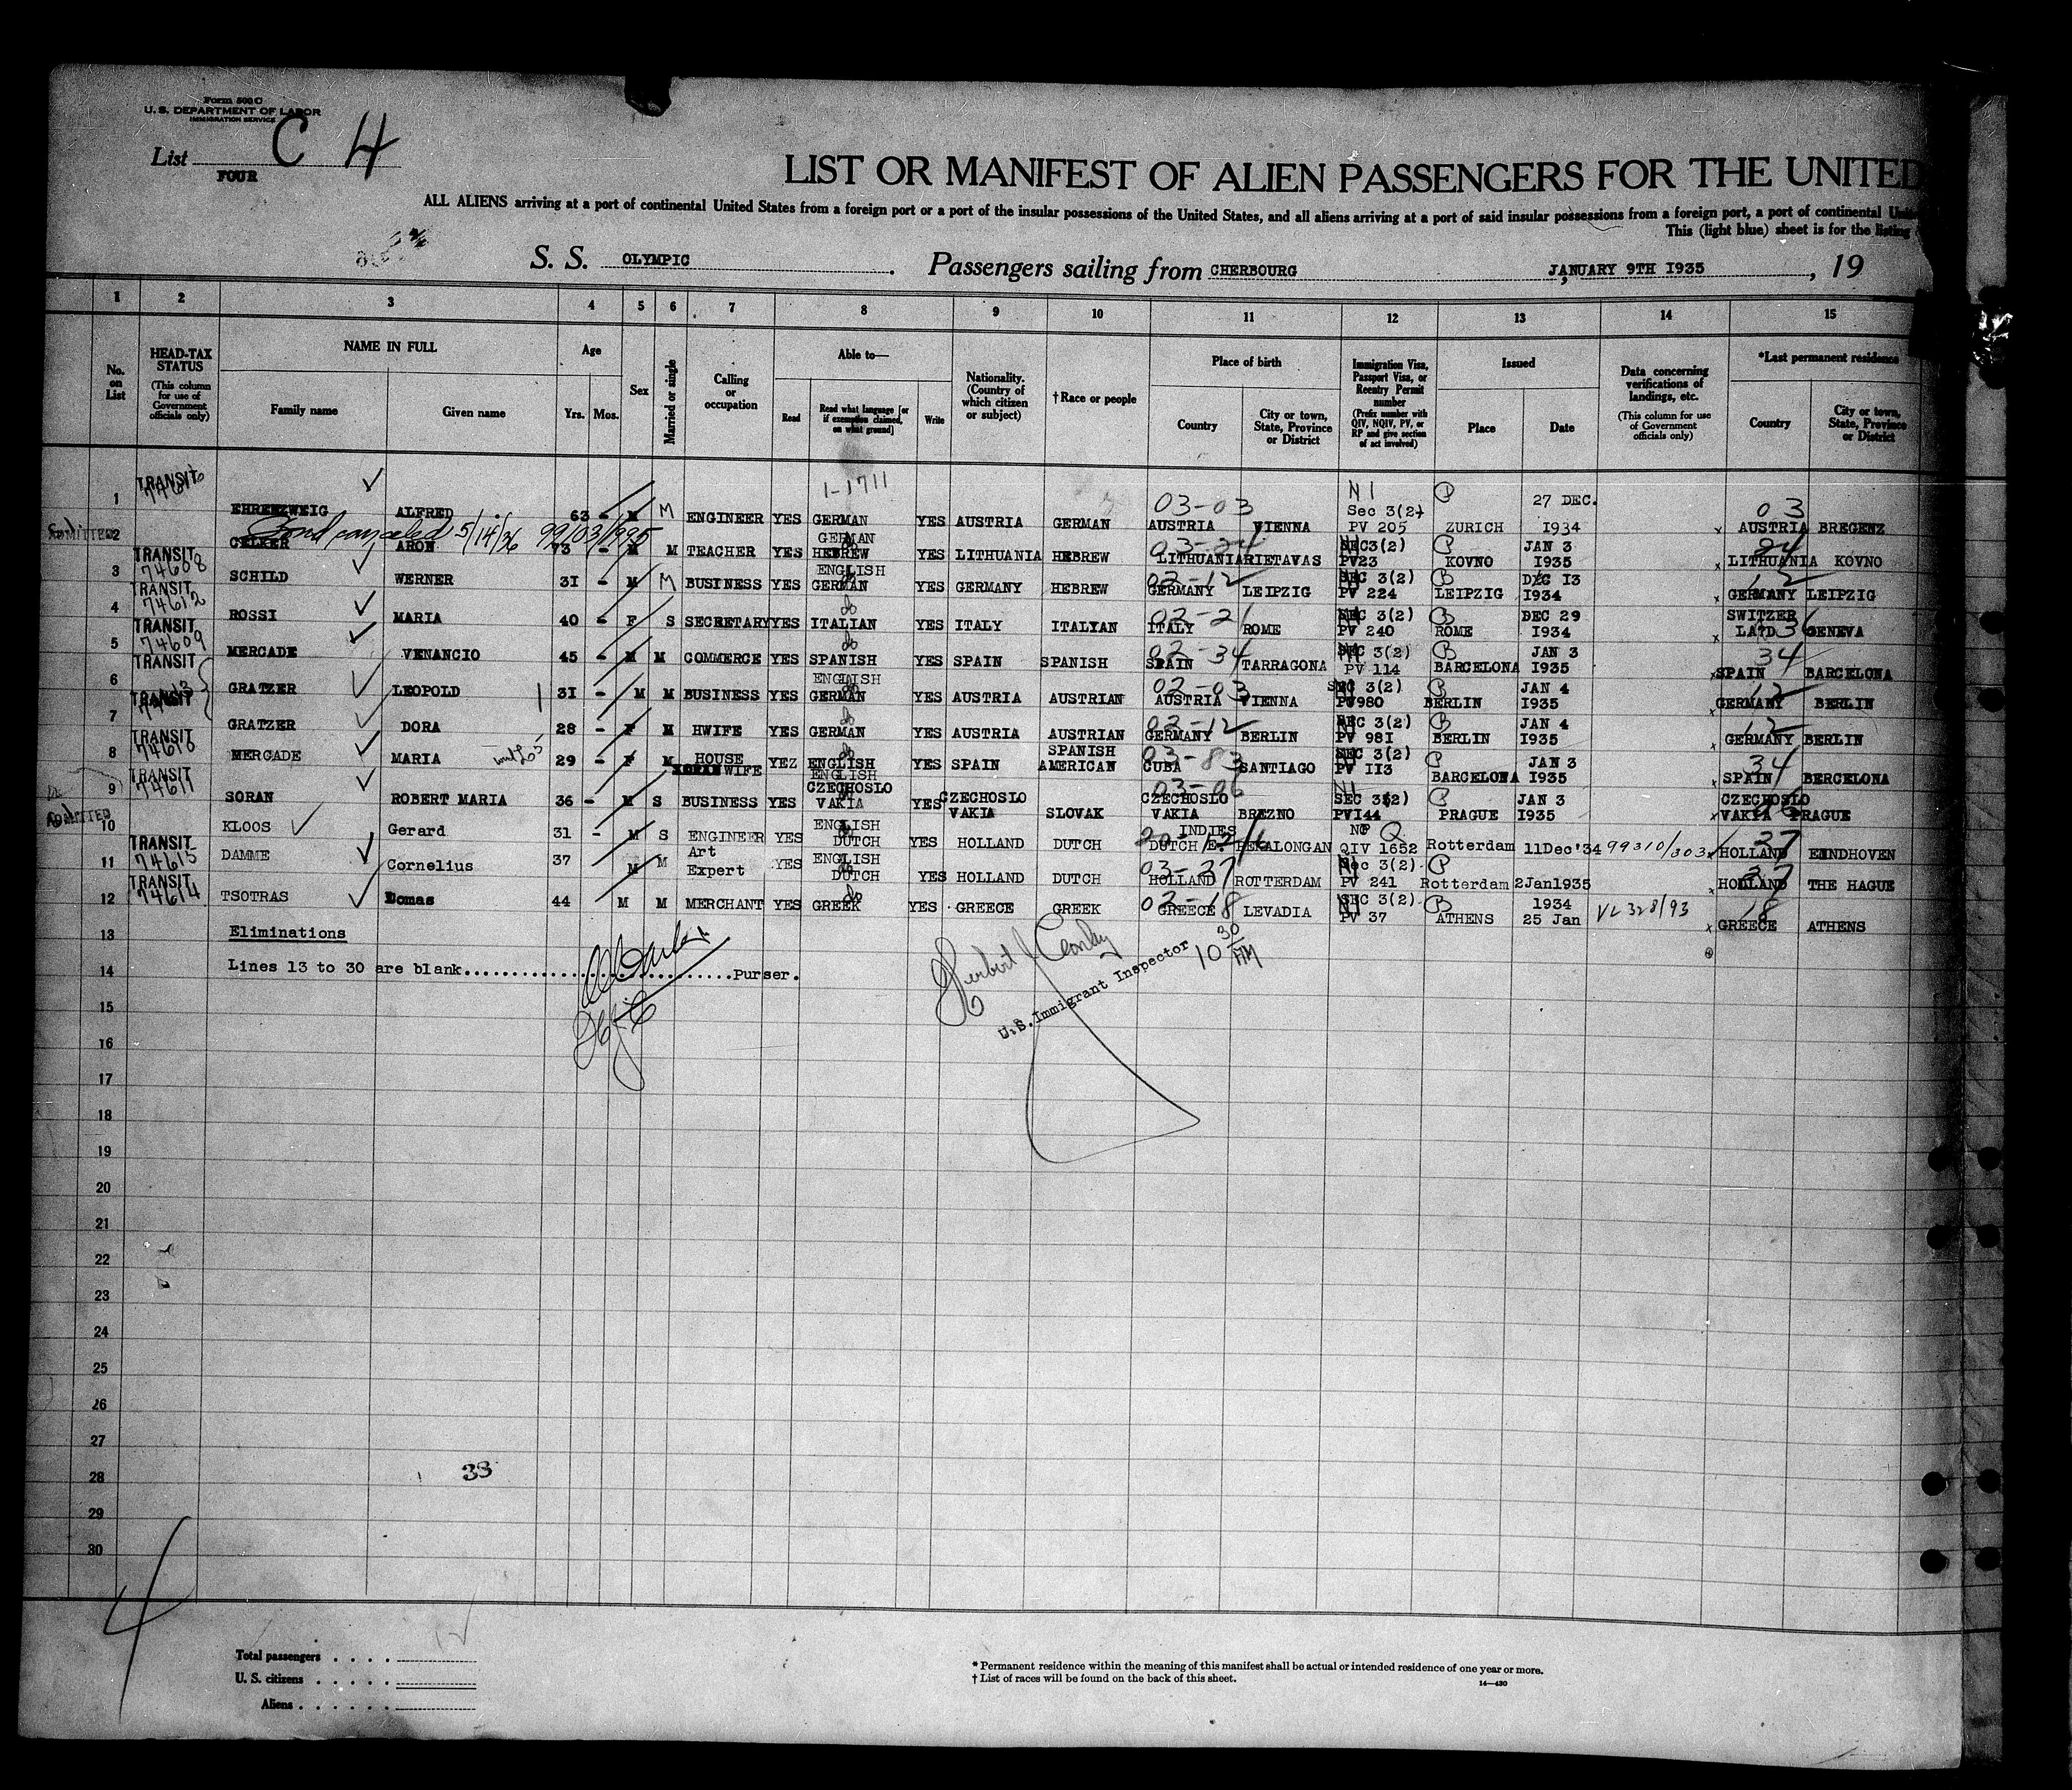 Form 500 C
U. S. DEPARTMENT OF LABOR
IMMIGRATION SERVICE
List C 4
FOUR
LIST OR MANIFEST OF ALIEN PASSENGERS FOR THE UNITED
ALL ALIENS arriving at a port of continental United States from a foreign port or a port of the insular possessions of the United States, and all aliens arriving at a port of said insular possessions from a foreign port, a port of continental
This (light blue) sheet is for the listing
S. S. OLYMPIC . Passengers sailing from CHERBOURG , JANUARY 9TH 1935 , 19
1 2 3 4 5 6 7 8 9 10 11 12 13 14 15
No. on List
HEAD-TAX STATUS (This column for use of Government officials only)
NAME IN FULL
Family name Given name
Age
Yrs. Mos.
Sex
Married or single
Calling or occupation
Able to—
Read Read what language [or if exemption claimed, on what ground] Write
Nationality. (Country of which citizen or subject)
†Race or people
Place of birth
Country City or town, State, Province or District
Immigration Visa, Passport Visa, or Reentry Permit number (Prefix number with QIV, NQIV, PV, or RP and give section of act involved)
Issued
Place Date
Data concerning verifications of landings, etc. (This column for use of Government officials only)
*Last permanent residence
Country City or town, State, Province or District
1 TRANSIT EHRENZWEIG ALFRED 63 - M M ENGINEER YES GERMAN YES AUSTRIA GERMAN 03-03 AUSTRIA VIENNA Sec 3(2) PV 205 ZURICH 27 DEC. 1934 x 03 AUSTRIA BREGENZ
1-1711
Bond canceled 5/14/36 99103/1995
2 ADMITTED ARON 73 - M M TEACHER YES GERMAN HEBREW YES LITHUANIA HEBREW LITHUANIA RIETAVAS SEC 3(2) PV23 KOVNO JAN 3 1935 x LITHUANIA KOVNO
3 TRANSIT 74608 SCHILD WERNER 31 - M M BUSINESS YES ENGLISH GERMAN YES GERMANY HEBREW GERMANY LEIPZIG SEC 3(2) PV 224 LEIPZIG DEC 13 1934 x 12 GERMANY LEIPZIG
4 TRANSIT 74612 ROSSI MARIA 40 - F S SECRETARY YES ITALIAN YES ITALY ITALIAN ITALY ROME SEC 3(2) PV 240 ROME DEC 29 1934 x SWITZER LATD GENEVA
5 TRANSIT 74609 MERCADE VENANCIO 45 - M M COMMERCE YES SPANISH YES SPAIN SPANISH SPAIN TARRAGONA SEC 3(2) PV 114 BARCELONA JAN 3 1935 x 34 SPAIN BARCELONA
6 TRANSIT GRATZER LEOPOLD 31 - M M BUSINESS YES ENGLISH GERMAN YES AUSTRIA AUSTRIAN AUSTRIA VIENNA SEC 3(2) PV980 BERLIN JAN 4 1935 x 12 GERMANY BERLIN
7 TRANSIT GRATZER DORA 28 - F M HWIFE YES GERMAN YES AUSTRIA AUSTRIAN GERMANY BERLIN SEC 3(2) PV 981 BERLIN JAN 4 1935 x 12 GERMANY BERLIN
8 TRANSIT 74610 MERCADE MARIA 29 - F M HOUSE WIFE YEZ ENGLISH YES SPAIN SPANISH AMERICAN 03-83 CUBA SANTIAGO SEC 3(2) PV 113 BARCELONA JAN 3 1935 x 34 SPAIN BERCELONA
9 TRANSIT 74611 SORAN ROBERT MARIA 36 - M S BUSINESS YES ENGLISH CZECHOSLO VAKIA YES CZECHOSLO VAKIA SLOVAK 03-06 CZECHOSLO VAKIA BREZNO SEC 3(2) PV144 PRAGUE JAN 3 1935 x CZECHOSLO VAKIA PRAGUE
10 ADMITTED KLOOS Gerard 31 - M S ENGINEER YES ENGLISH DUTCH YES HOLLAND DUTCH DUTCH E. INDIES PEKALONGAN QIV 1652 Rotterdam 11Dec'34 99310/303 x 37 HOLLAND EINDHOVEN
11 TRANSIT 74615 DAMME Cornelius 37 M M Art Expert YES ENGLISH DUTCH YES HOLLAND DUTCH 03-37 HOLLAND ROTTERDAM Sec 3(2) PV 241 Rotterdam 2Jan1935 x 37 HOLLAND THE HAGUE
12 TRANSIT 74614 TSOTRAS Domas 44 M M MERCHANT YES GREEK YES GREECE GREEK GREECE LEVADIA SEC 3(2) PV 37 ATHENS 1934 25 Jan VL 328/93 x 18 GREECE ATHENS
13 Eliminations
14 Lines 13 to 30 are blank..............................Purser.
U.S. Immigrant Inspector
10 30 AM
15
16
17
18
19
20
21
22
23
24
25
26
27
28 33
29
30
4
Total passengers . . . .
U. S. citizens . . . . .
Aliens . . . . . .
* Permanent residence within the meaning of this manifest shall be actual or intended residence of one year or more.
† List of races will be found on the back of this sheet.
14—430